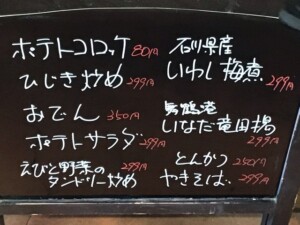 ポテトコロッケ 80円
ひじき炒め 299円
おでん 350円
ポテトサラダ 299円
えびと野菜の
タンドリー炒め 299円
石川県産
いわし梅煮 299円
舞鶴港
いなだ竜田揚 299円
とんかつ 250円
やきそば 299円